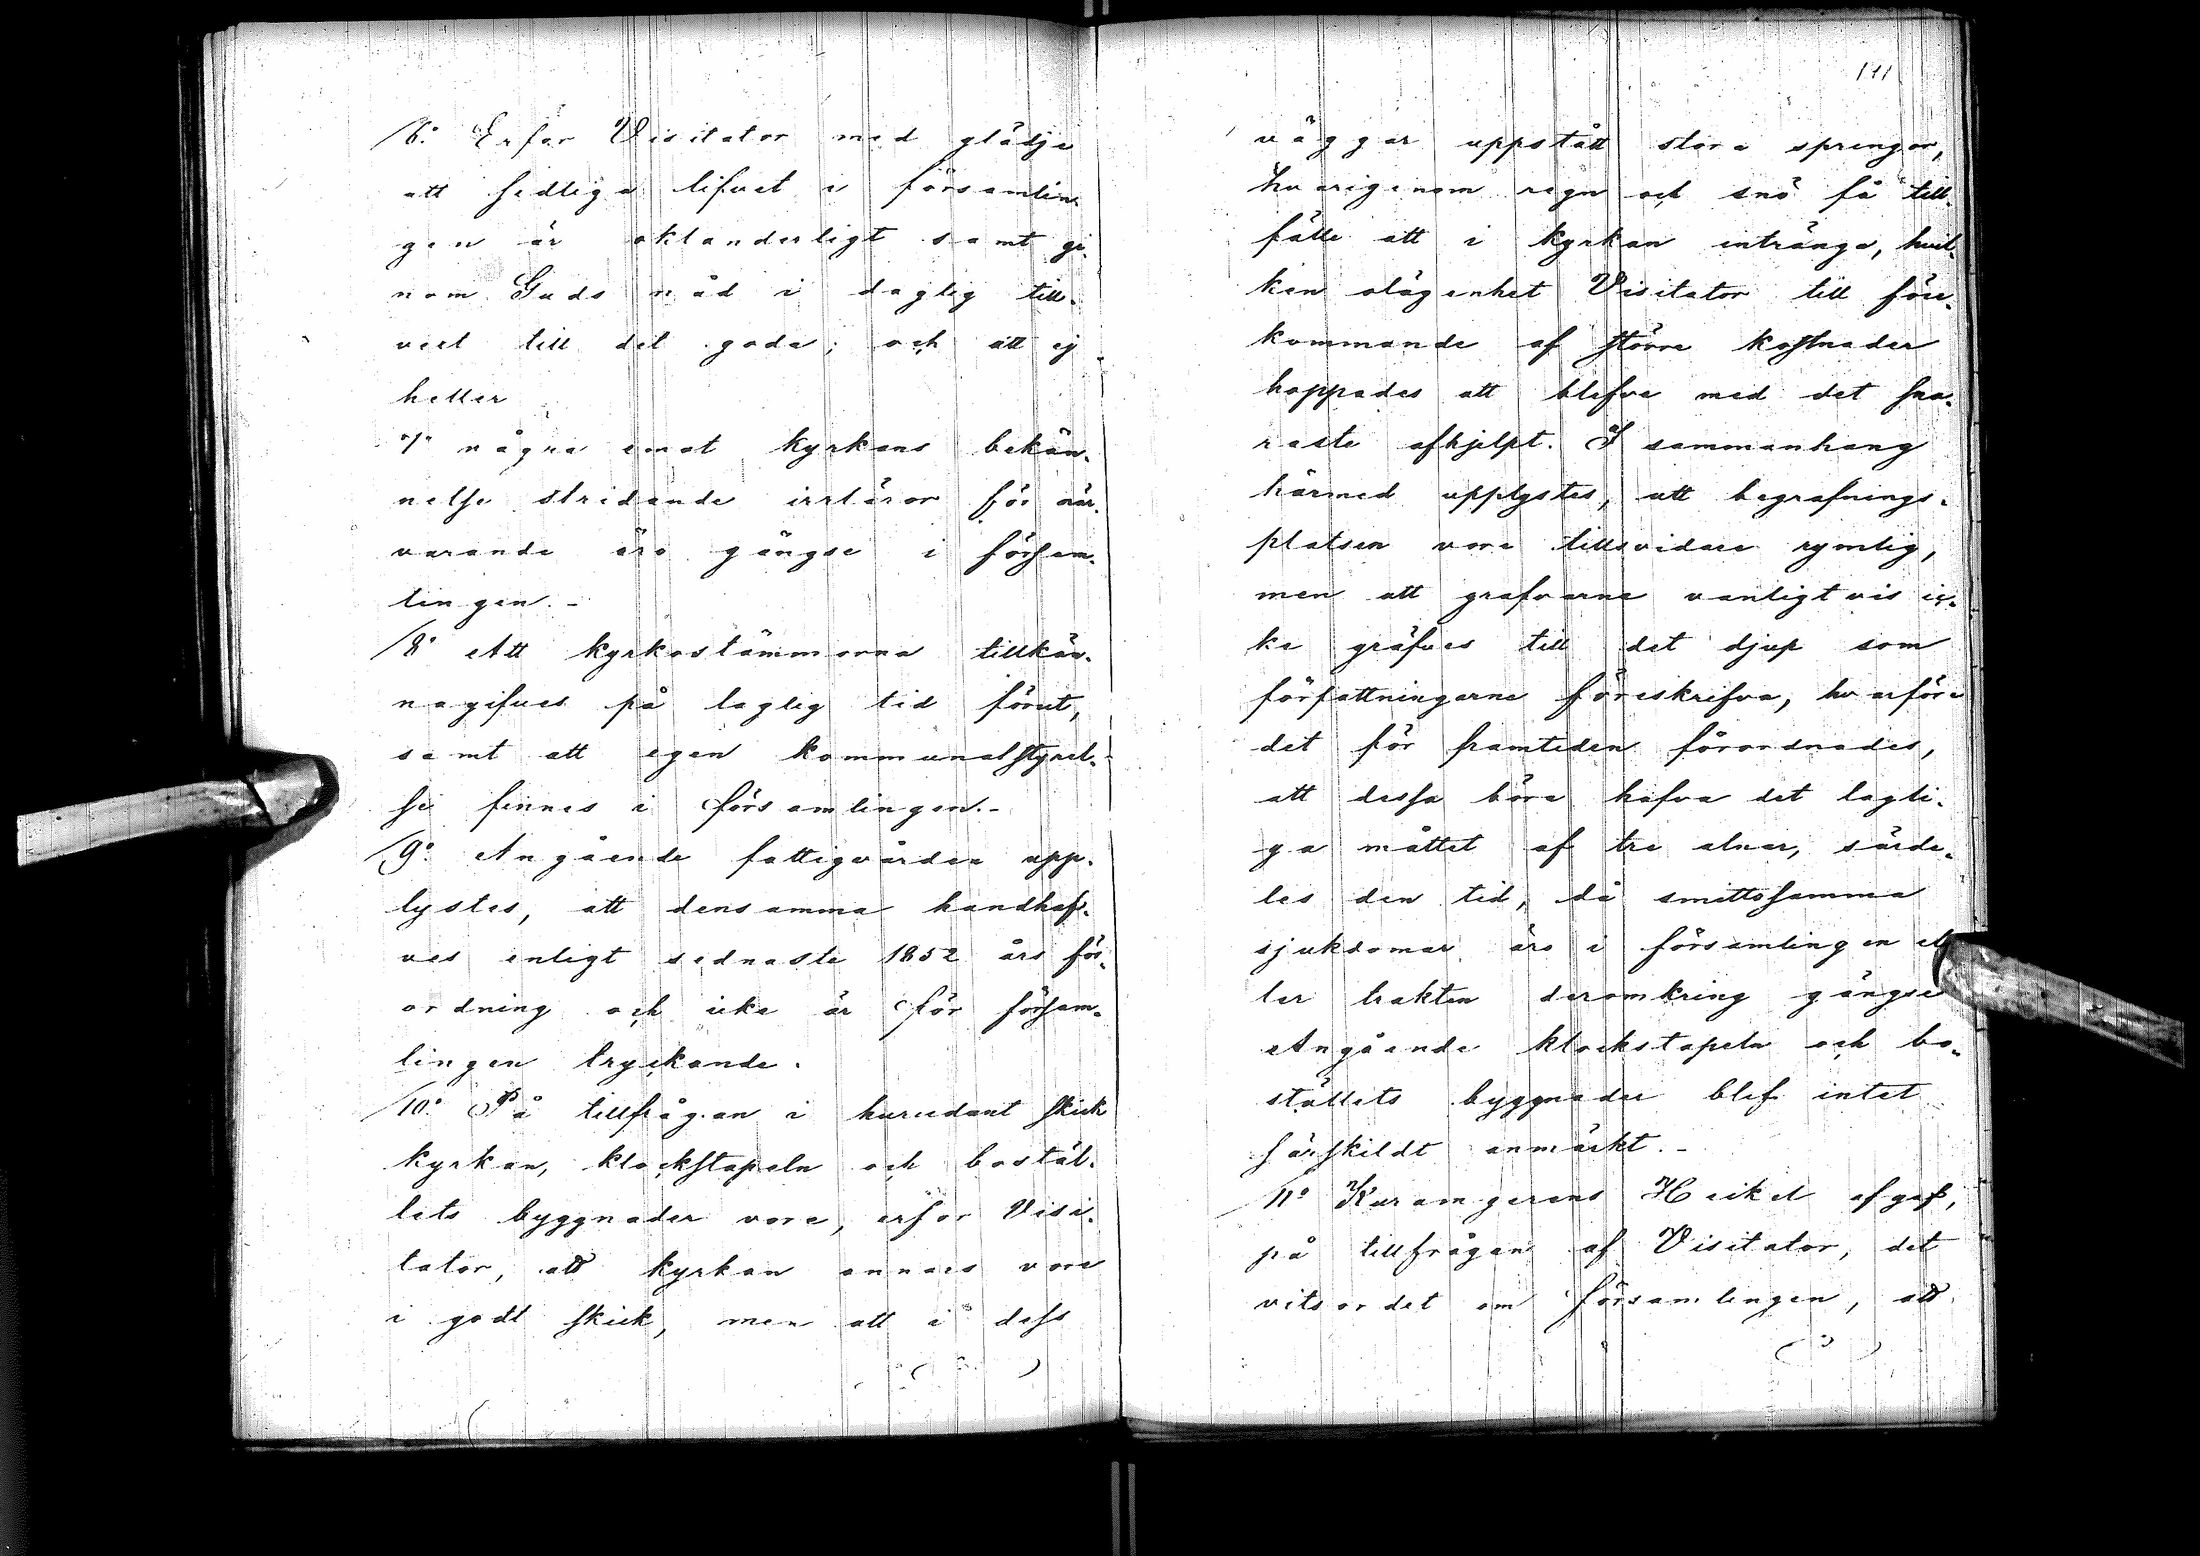 6:o Erfor Visitator med glädje
att sedliga lifvet i församlin-
gen är oklanderligt samt ge-
nom Guds nåd i daglig till-
vext till det goda; och att ej
heller
7o några emot kyrkans bekän-
nelse stridande irrläror för när-
varande äro gängse i försam-
lingen.-
8o Att kyrkostämmorna tillkän-
nagifves på laglig tid förut,
samt att egen kommunalstyrel-
se finnes i församlingen.-
9:o Angående fattigvården upp-
lystes, att densamma handhaf-
ves enligt sednaste 1852 års för-
ordning och icke är för försam-
lingen tryckande.
10:o På tillfrågan i hurudant skick
kyrkan, klockstapeln och bostäl-
lets byggnader vore, erfor Visi-
tator, att kyrkan annars vore
i godt skick, men att i dess
111
väggar uppstått stora springor,
hvarigenom regn och snö få till-
fälle att i kyrkan intränga, hvil-
ken olägenhet Visitator till före-
kommande af större kostnader
hoppades att blefve med det sna-
raste afhjelpt. I sammanhang
härmed upplystes, att begrafnings-
platsen vore tillsvidare rymlig,
men att grafvarne vanligtvis ic-
ke gräfves till det djup som
författningarne föreskrifva, hvarföre
det för framtiden förordnades,
att dessa böra hafva det lagli-
ga måttet af tre alnar, särde-
les den tid, då smittosamma
sjukdomar äro i församlingen el-
ler trakten deromkring gängse
Angående klockstapeln och bo-
ställets byggnader blef intet
särskildt anmärkt.-
11o Kuramgerens Heikel afgaf,
på tillfrågan af Visitator, det
vitsordet om församlingen, att